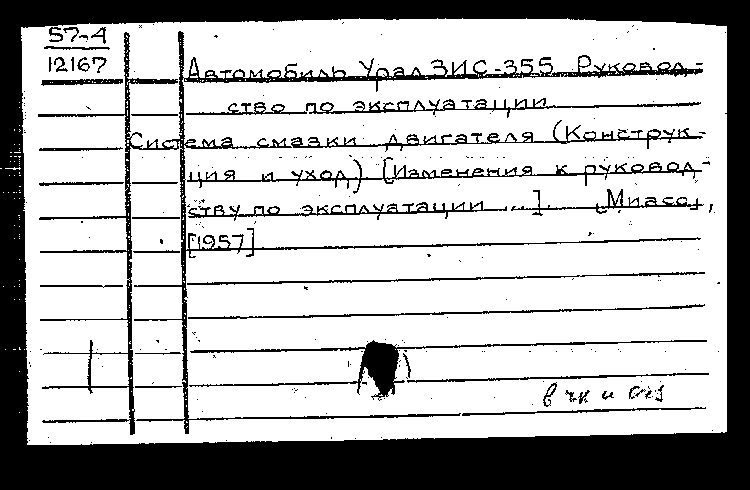 57-4
12167
Автомобиль Урал ЗИС-355 Руковод-
ство по эксплуатации
Система смазки двигателя (Конструк-
ция и уход) [Изменения к руковод-
ству по эксплуатации ...]. [Миасс],
[1957]
в чк и